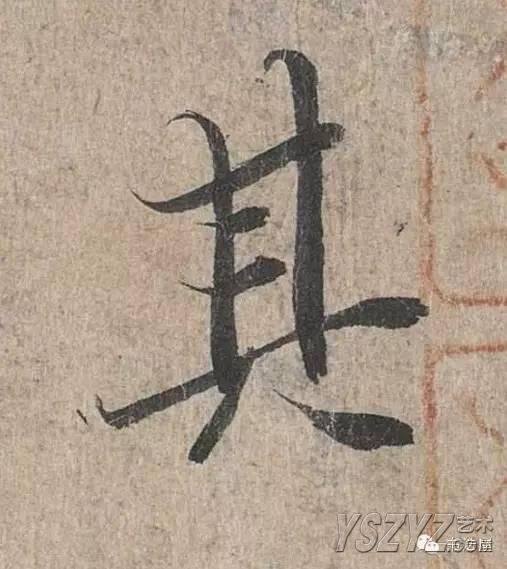 其
YSZYZ艺术
书法屋